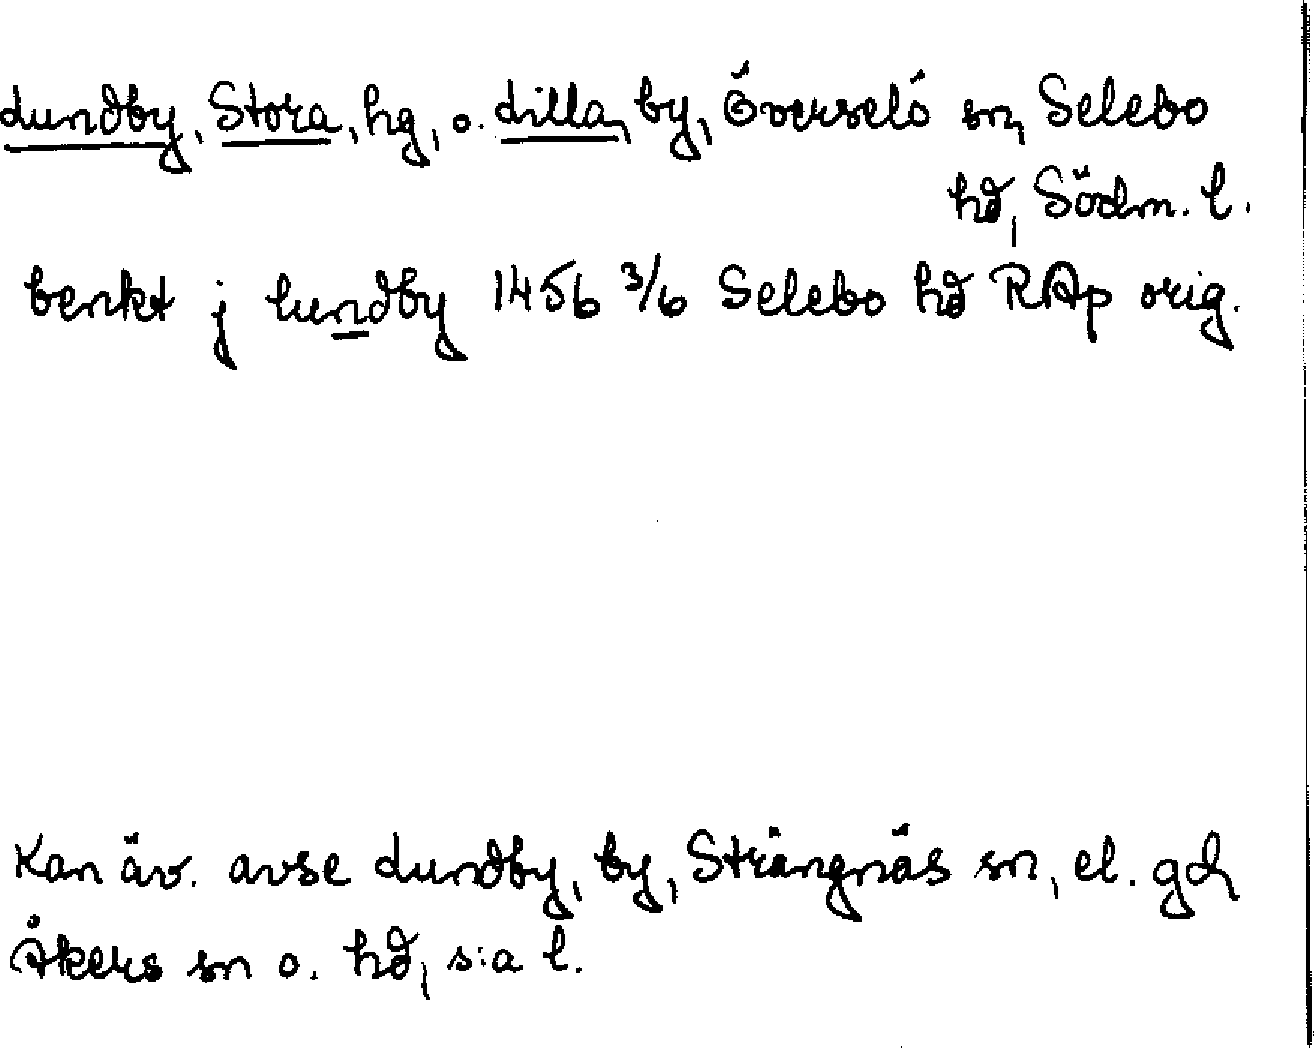 Lundby, Stora, hg, o. Lilla, by, Överselö sn, Selebo
hd, Södm. l.
benkt j lundby 1456 3/6 Selebo hd RAp orig.
Kan äv. avse Lundby, by, Strängnäs sn, el. gd,
Åkers sn o. hd, s:a l.